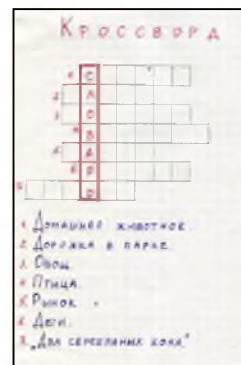 КРОССВОРД
1. С
2. Л
3. О
4. В
5. А
6. Р
7. Ь
1. ДОМАШНЕЕ ЖИВОТНОЕ.
2. ДОРОЖКА В ПАРКЕ.
3. ОВОЩ.
4. ПТИЦА.
5. РЫНОК.
6. ДЕТИ.